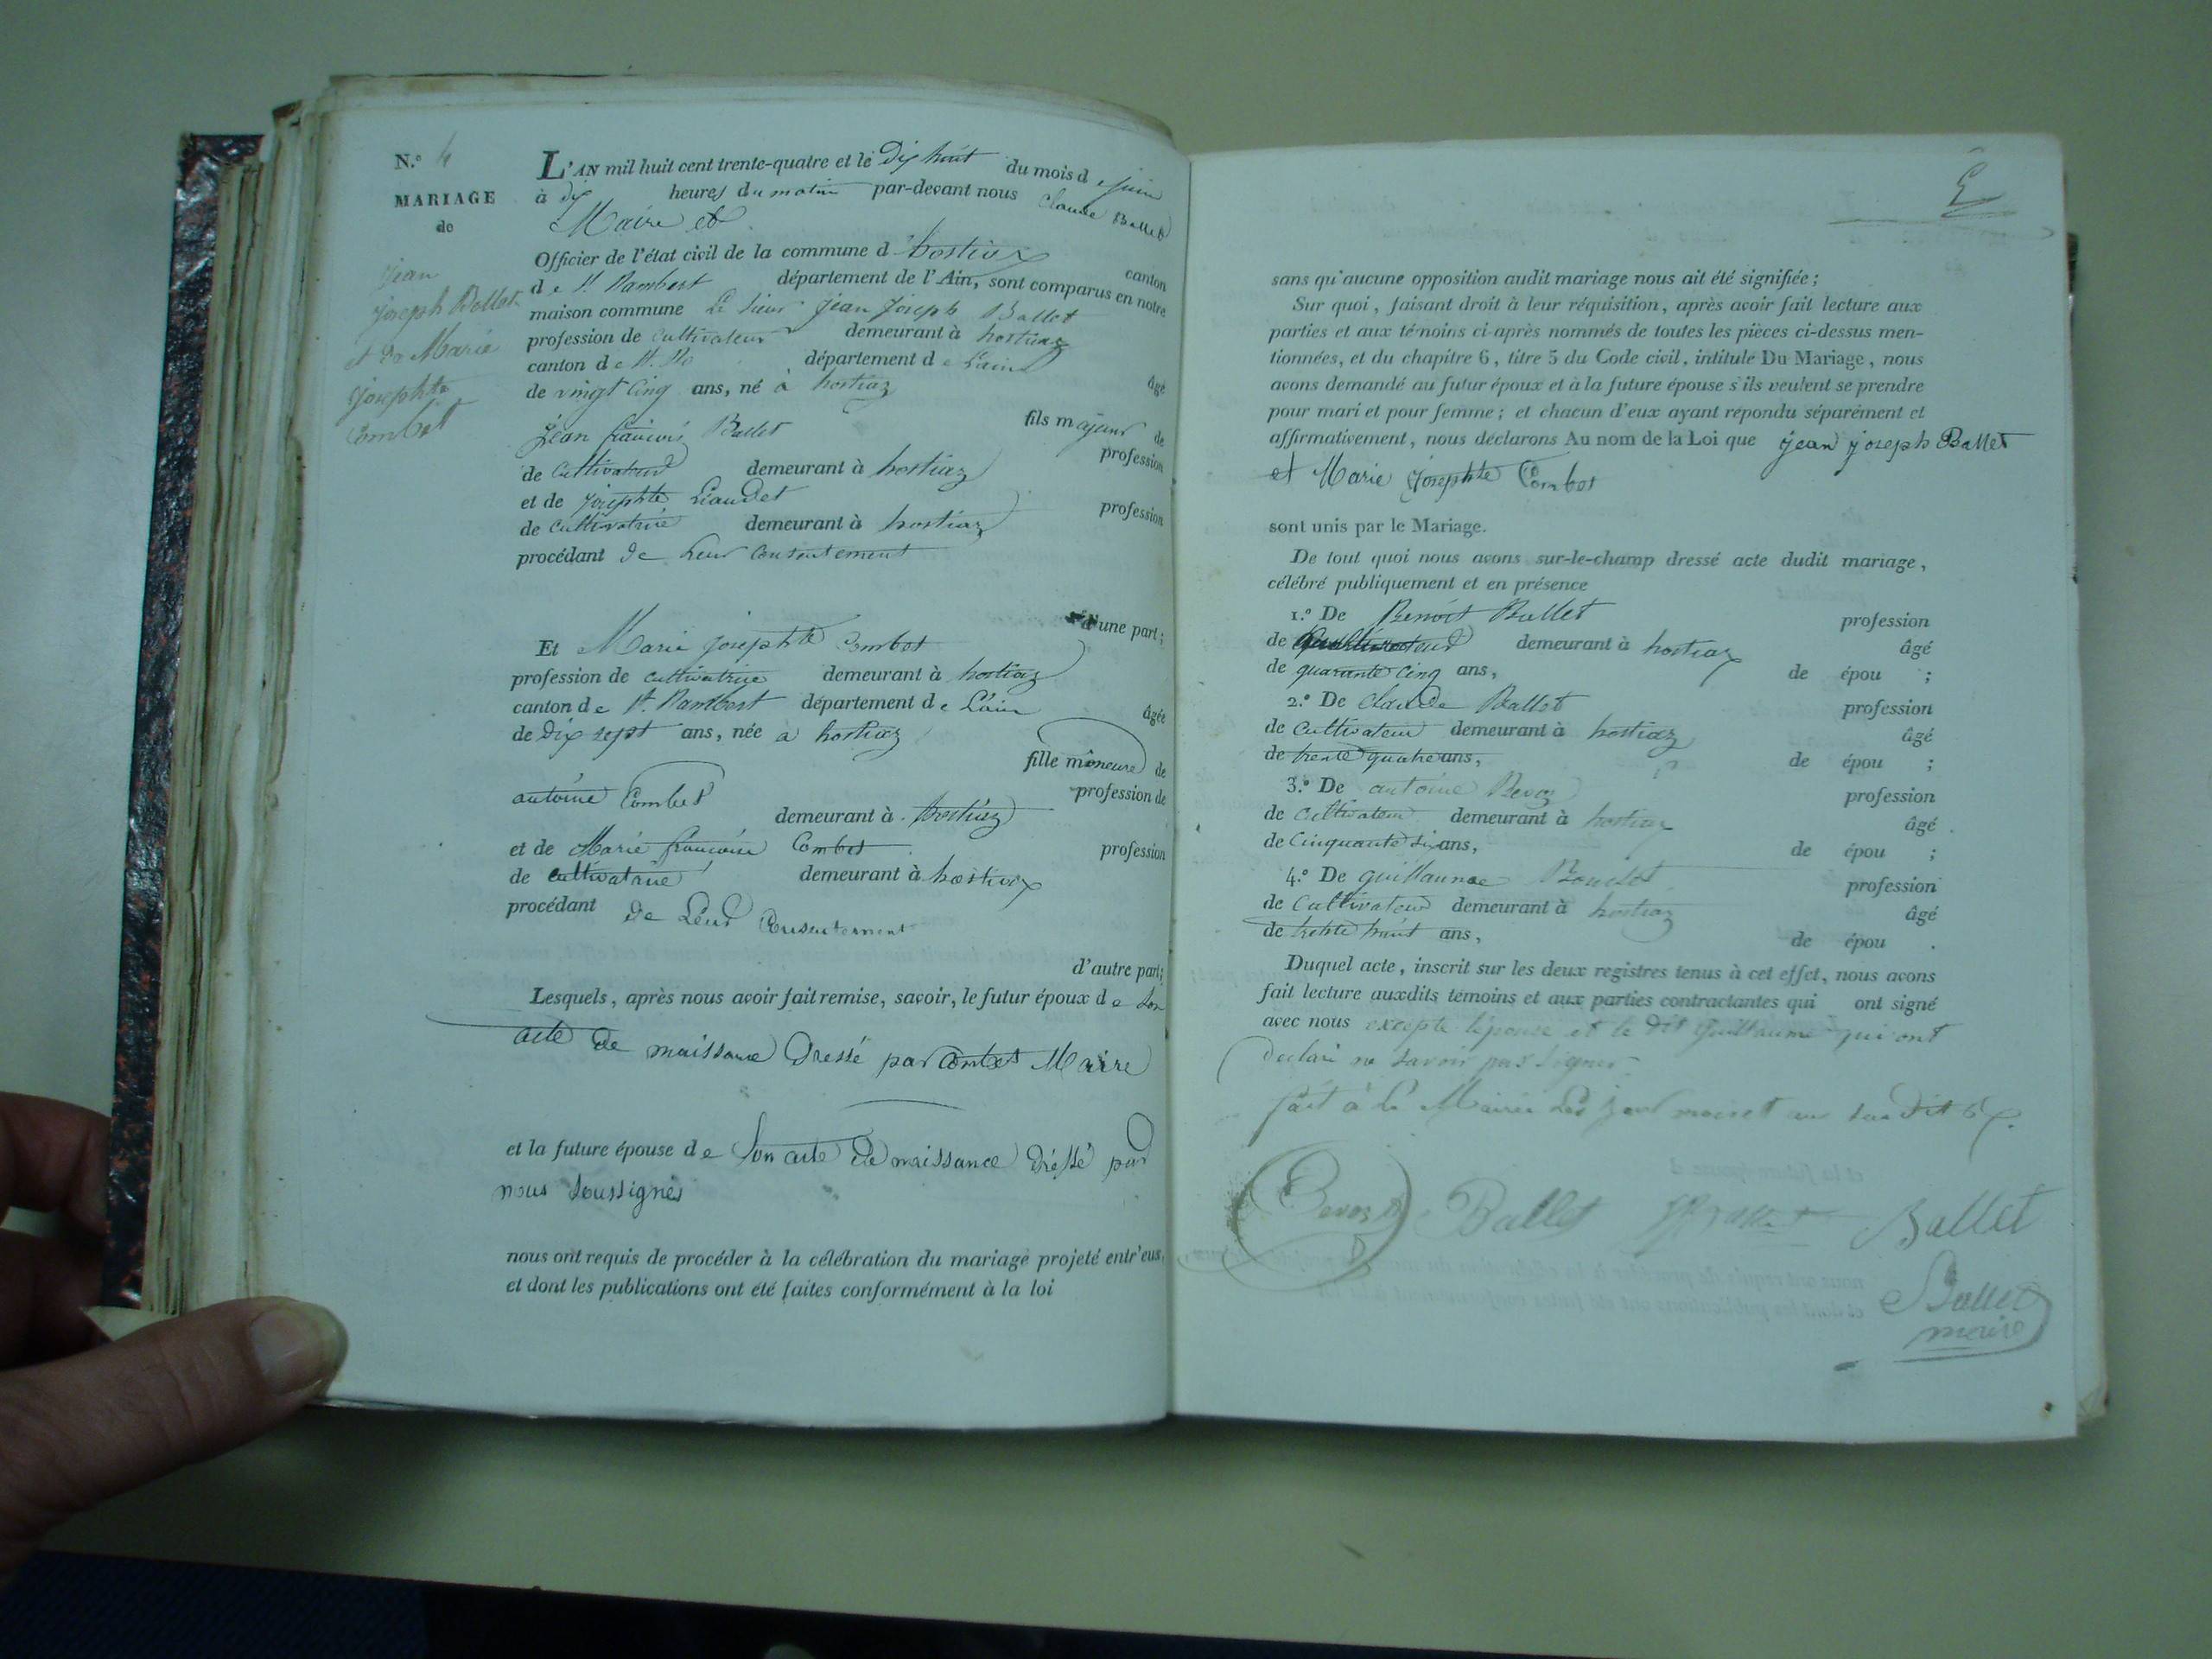 N.º 4
MARIAGE
de
jean
joseph Ballet
et de Marie
josephte
Combet
L'AN mil huit cent trente-quatre et le Dix huit du mois de juin
à dix heures du matin par-devant nous Claude Ballet
Maire et
Officier de l'état civil de la commune d'hostiaz canton
de St. Rambert département de l'Ain, sont comparus en notre
maison commune Le Sieur jean joseph Ballet
profession de cultivateur demeurant à hostiaz
canton de St. Ra département de L'ain âgé
de vingt cinq ans, né à hostiaz
fils majeur de
jean francois Ballet profession
de cultivateur demeurant à hostiaz
et de josephte Liaudet profession
de cultivatrice demeurant à hostiaz
procédant de Leur consentement
d'une part;
Et Marie josephte Combet
profession de cultivatrice demeurant à hostiaz
canton de St. Rambert département de L'ain âgée
de dix sept ans, née à hostiaz
fille mineure de
antoine Combet profession de
demeurant à hostiaz
et de Marie francoise Combet profession
de cultivatrice demeurant à hostiaz
procédant de Leur Consentement
d'autre part;
Lesquels, après nous avoir fait remise, savoir, le futur époux de son
acte de naissance Dressé par Combet Maire
et la future épouse de son acte de naissance dréssé par
nous soussignés
nous ont requis de procéder à la célébration du mariage projeté entr'eus,
et dont les publications ont été faites conformément à la loi
sans qu'aucune opposition audit mariage nous ait été signifiée;
Sur quoi, faisant droit à leur réquisition, après avoir fait lecture aux
parties et aux témoins ci-après nommés de toutes les pièces ci-dessus men-
tionnées, et du chapitre 6, titre 5 du Code civil, intitulé Du Mariage, nous
avons demandé au futur époux et à la future épouse s'ils veulent se prendre
pour mari et pour femme; et chacun d'eux ayant répondu séparément et
affirmativement, nous déclarons Au nom de la Loi que jean joseph Ballet
et Marie josephte Combet
sont unis par le Mariage.
De tout quoi nous avons sur-le-champ dressé acte dudit mariage,
célébré publiquement et en présence
1.º De Benoit Ballet profession
de cultivateur demeurant à hostiaz âgé
de quarante cinq ans, de épou ;
2.º De Claude Ballet profession
de cultivateur demeurant à hostiaz âgé
de trente quatre ans, de épou ;
3.º De antoine Bevoz profession
de cultivateur demeurant à hostiaz âgé
de cinquante six ans, de épou ;
4.º De guillaume profession
de cultivateur demeurant à hostiaz âgé
de trente huit ans, de épou .
Duquel acte, inscrit sur les deux registres tenus à cet effet, nous avons
fait lecture auxdits témoins et aux parties contractantes qui ont signé
avec nous excepte l'épouse et le dit guillaume qui ont
declaré ne savoir pas signer
fait à la Mairie Les jour mois et an sus dit
Bevoz Ballet Ballet
Ballet
maire